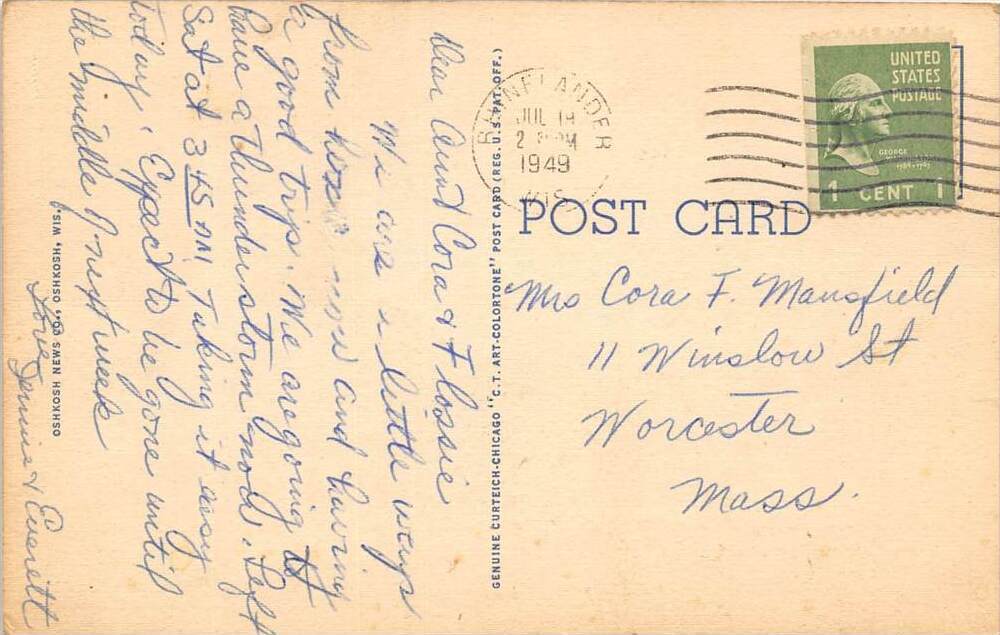 Dear Aunt Cora & Flossie
We are a little ways
from home now and having
a good trip. We are going to
have a thunderstorm now. Left
Sat at 3 45 AM Taking it easy
today. Expect to be gone until
the middle of next week
Love Jennie & Everett
OSHKOSH NEWS CO., OSHKOSH, WIS.
GENUINE CURTEICH-CHICAGO "C.T. ART-COLORTONE" POST CARD (REG. U.S. PAT. OFF.)
RHINELANDER
JUL 19
2 PM
1949
WIS
UNITED
STATES
POSTAGE
GEORGE
WASHINGTON
1 CENT 1
POST CARD
Mrs Cora F. Mansfield
11 Winslow St
Worcester
Mass.